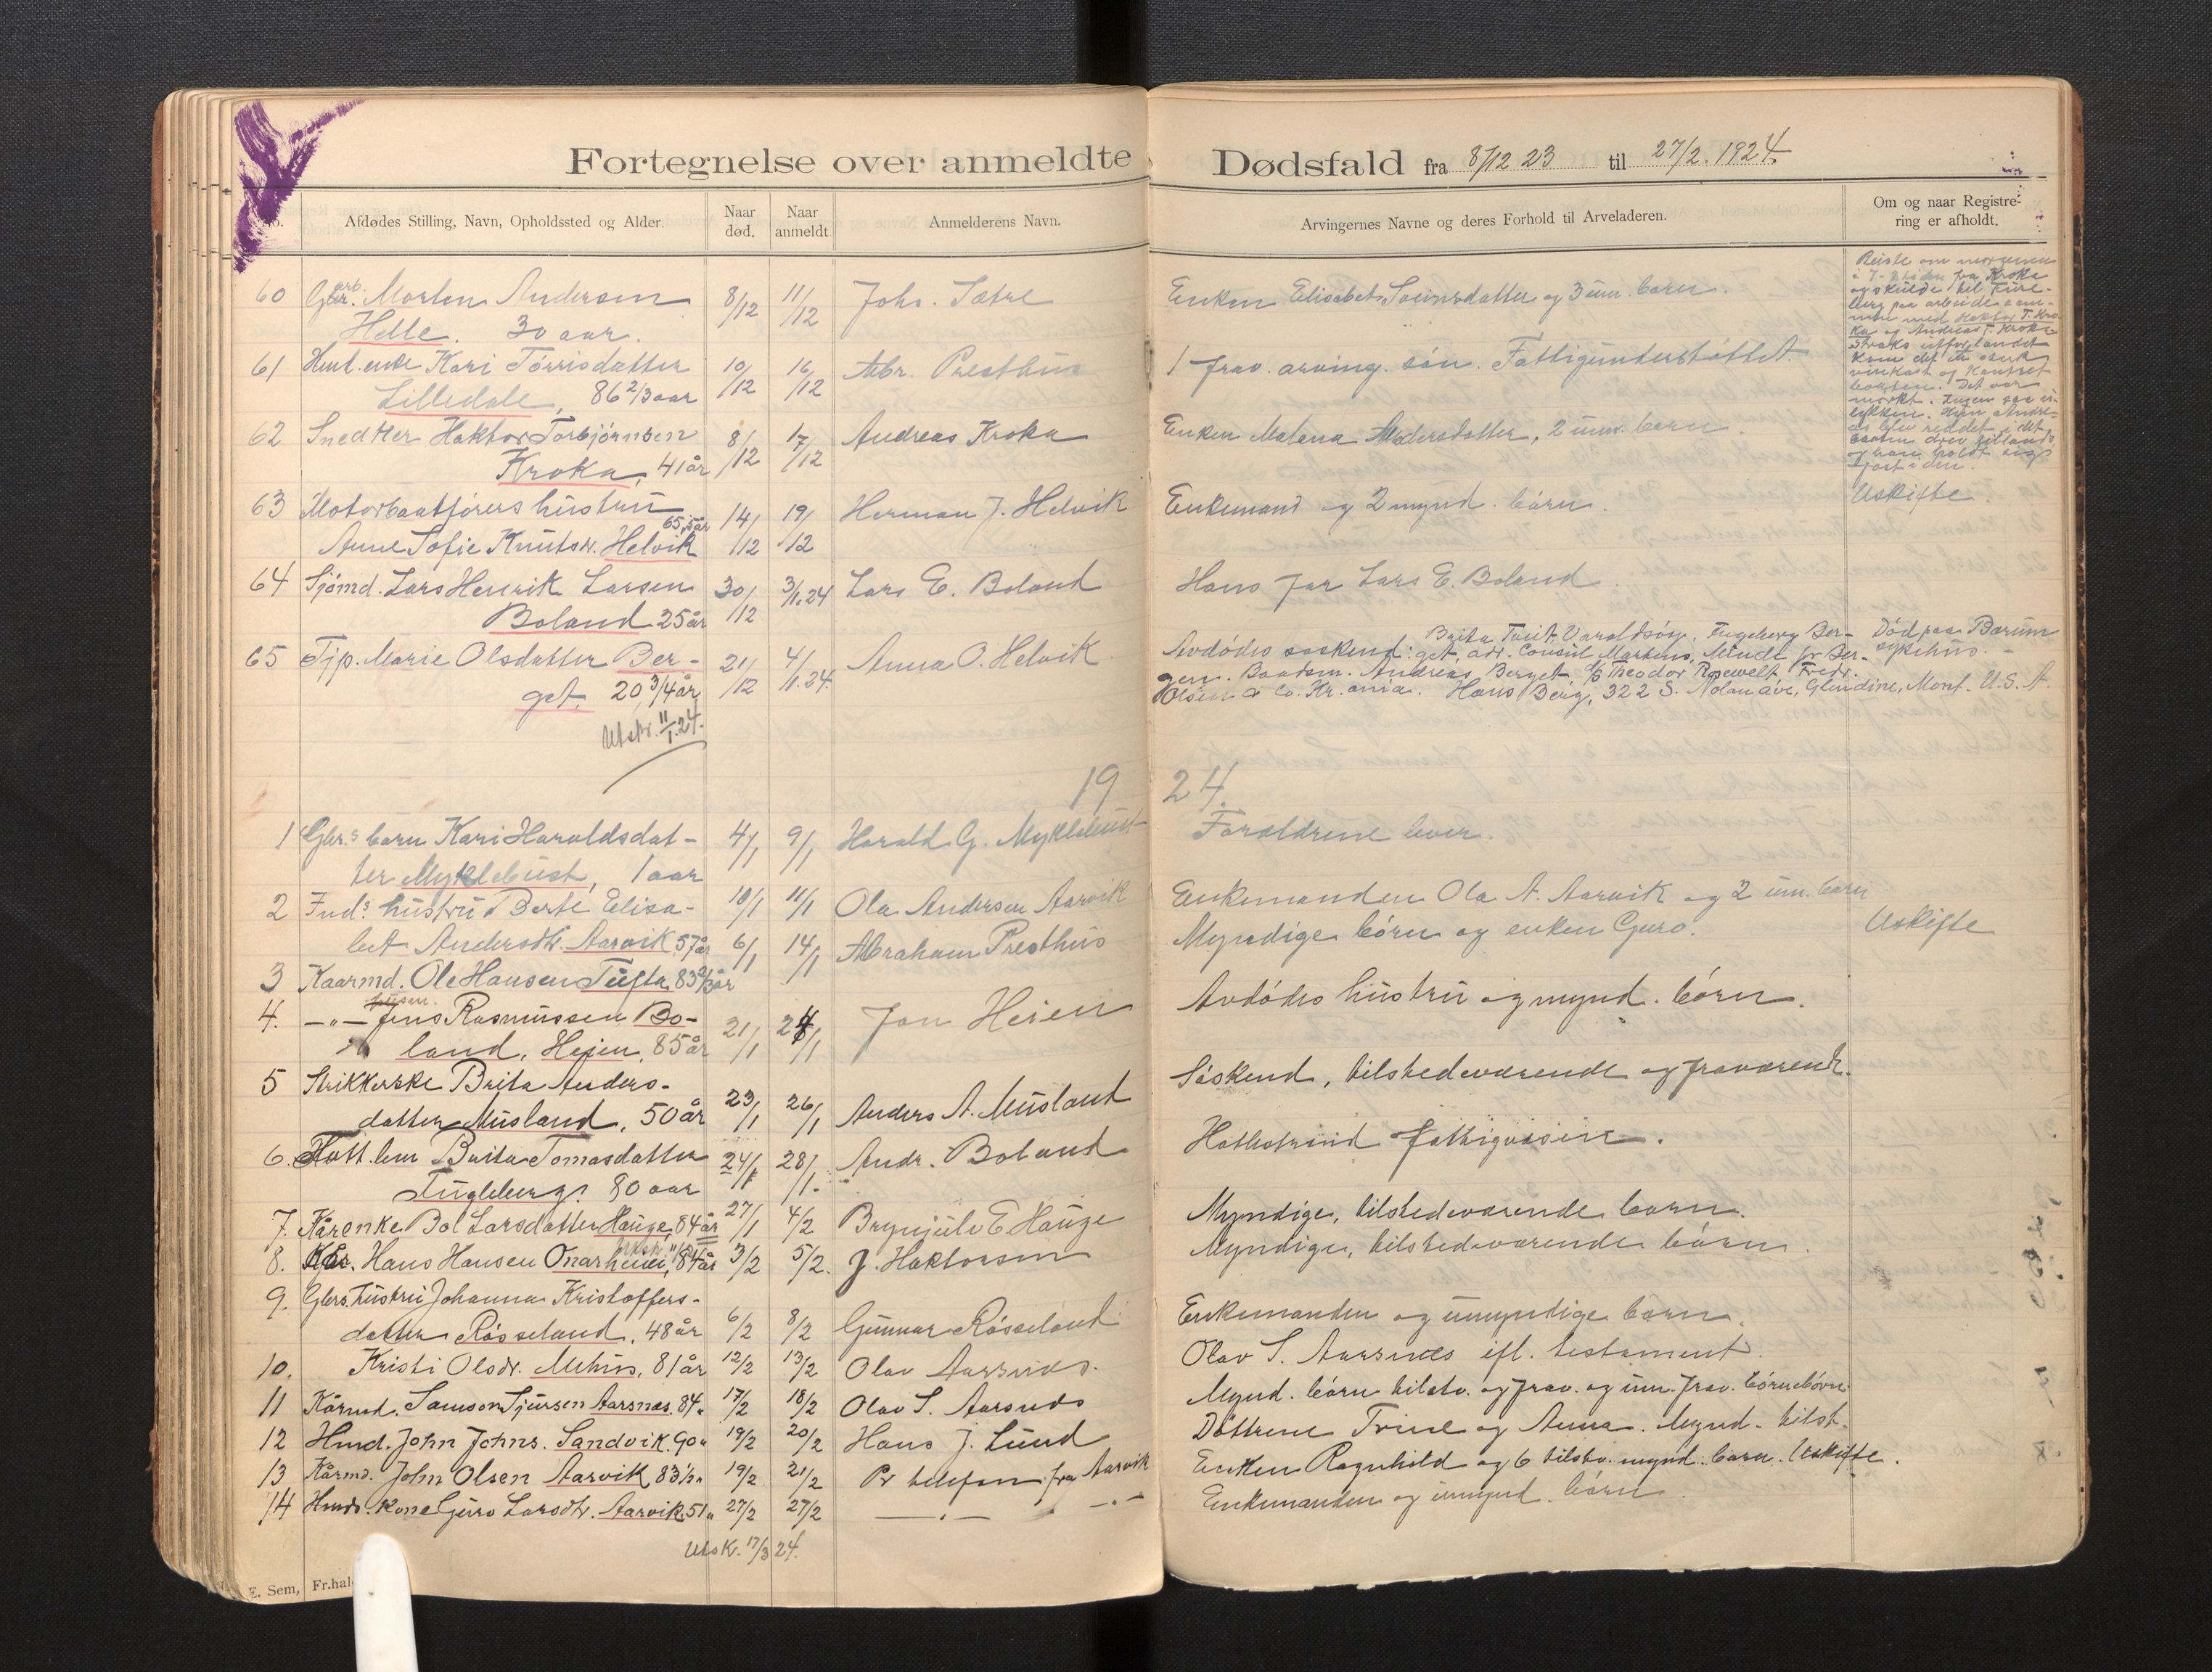 Fortegnelse over anmeldte Dødsfald fra 8/12 23 til 27/2. 1924.
No. Afdødes Stilling, Navn, Opholdssted og Alder. Naar død. Naar anmeldt Anmelderens Navn. Arvingernes Navne og deres Forhold til Arveladeren. Om og naar Registrering er afholdt.
60 Gbr. arb. Morten Andersen 8/12 11/12 Johs. Sætre Enken Elisabet og 3 um. børn.
Helle. 30 aar.
Reiste om morgenen
i 7-tiden fra Kroka
og skulde til Fure-
berg paa arbeide sam-
men med Haktor T. Kro
ka og Andreas T. Kroka
Straks utfor landet
kom det en sterk
vinkast og kantret
baaten. Det var
mørkt. Ingen saa u-
lykken. Kun Andre-
as blev reddet, idet
baaten drev tillands
og han holdt sig
fast i den.
61 Hmt. enke Kari Tørrisdatter 10/12 16/12 Abr. Presthus 1 frav. arving. søn. Fattigunderstøttet.
Lilledale, 86 2/3 aar
62 Snedker Haktor Torbjørnsen 8/12 17/12 Andreas Kroka Enken Malena Andersdatter, 2 umv. børn.
Kroka, 41 år
63 Motorbaatførers hustru 14/12 19/12 Herman J. Helvik Enkemand og 2 mynd. børn. Uskifte.
Anne Sofie Knutsdr. Helvik 65,5 år
64 Sjømd. Lars Henrik Larsen 30/12 3/1.24 Lars E. Boland Hans far Lars E. Boland.
Boland 25 år
65 Tjp. Marie Olsdatter Ber- 21/12 4/1.24. Anna O. Helvik. Avdødes søskend: Brita Varaldsøy, Ingeborg Ber- Død paa Bærum
get, 20 3/4 år get, adr. Consul Martens, Minde pr Ber- sykehus.
gen. Baadsm. Andreas Berget D/S Theodor Rosewelt Fredr.
Olsen & Co. Kr.ania. Hans Berg, 322 S. Nolan ave, Glendine, Mont. U.S.A.
Utskr. 11/1.24.
1924.
1 Gbr.s barn Kari Haraldsdat- 4/1 9/1 Harald G. Myklebust Foreldrene lever.
ter Myklebust, 1 aar
2 Ind.s hustru Berte Elisa- 10/1 11/1 Ola Andersen Aarvik Enkemanden Ola A. Aarvik og 2 um. børn
bet Andersdtr. Aarvik 57 år
3 Kaarmd. Ole Hansen Tufta 83 2/3 år 6/1 14/1 Abraham Presthus Myndige børn og enken Guro. Uskifte
4. —„— Jens Rasmussen Bo- 21/1 24/1 Jon Heien Avdødes hustru og mynd. børn.
land, Heien, 85 år
5 Strikkerske Brita Anders- 23/1 26/1 Anders A. Musland Søskend, tilstedeværende og fraværende.
datter Musland, 50 år
6. Fatt.lem Brita Tomasdatter 24/1 28/1. Andr. Boland Hatlestrand fattigvæsen.
Fugleberg. 80 aar
7. Kårenke Bol Larsdatter Hauge, 84 år 27/1 4/2 Brynjulv E Hauge Myndige, tilstedeværende børn.
8. Kår. Hans Hansen Onarheim, 84 år 3/2 5/2. J. Haktorsen Myndige, tilstedeværende børn.
9. Gbrs. hustru Johanna Kristoffers- 6/2 8/2 Gunnar Røsseland Enkemanden og umyndige børn.
datter Røsseland, 48 år
10. Kristi Olsdr. Mehus, 81 år 12/2 13/2 Olav Aarsnes. Olav S. Aarsnes ifl. testament.
11 Kårmd. Samson Sjursen Aarsnes. 84„ 17/2 18/2 Olav S. Aarsnes Mynd. børn tilstv. og frav. og um. frav. børnebørn.
12 Hmd. John Johns. Sandvik. 90„ 19/2 20/2 Hans J. Lund Døttrene Trine og Anna. Mynd. tilst.
13 Kårmd. John Olsen Aarvik 83 1/2„ 19/2 21/2 Pr telefon fra Aarvik Enken Ragnhild og 6 tilstv. mynd. børn. Uskifte.
14 Hmds. Kone Guro Larsdtr. Aarvik 51„ 27/2 27/2 —„— —„— Enkemanden og umynd. børn.
Utsk. 17/3 24.
E. Sem, Fr.hal